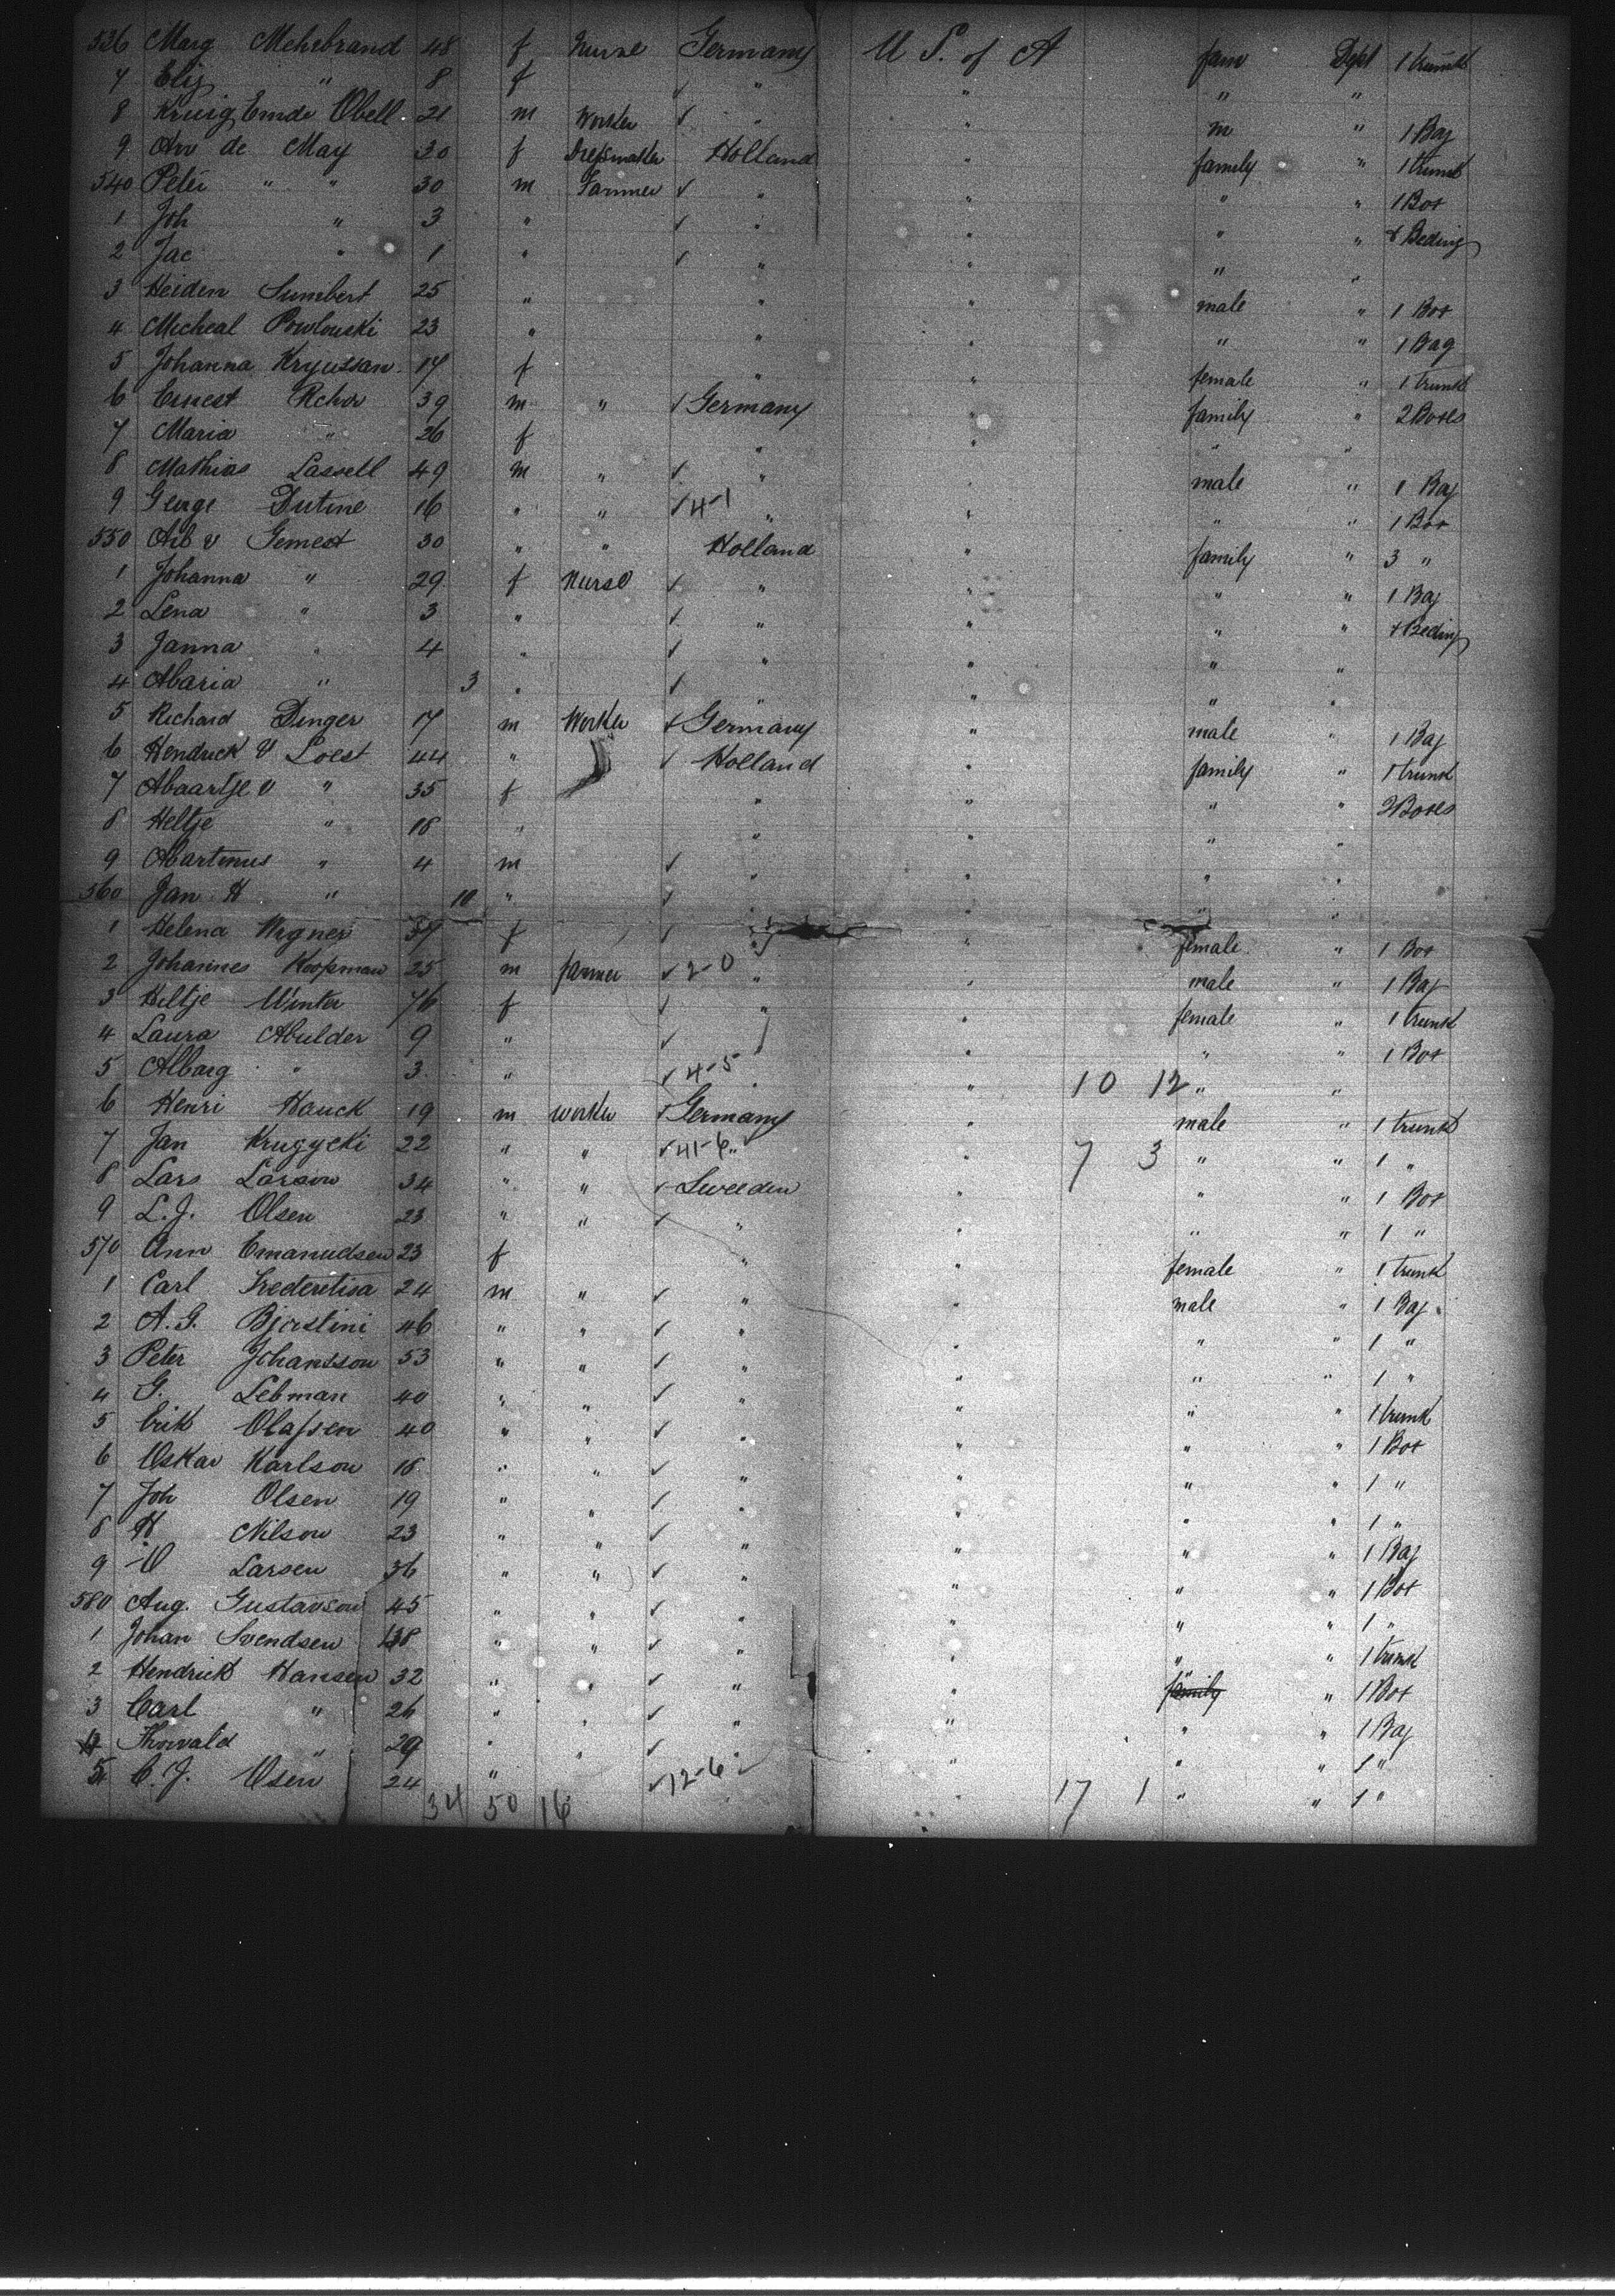 536 Marg Mehrbrand 48 f Nurse Germany U S. of A fam Dept 1 trunk
7 Elij " 8 f ✓ " " " "
8 Kruig Emde Obell 21 m Worker ✓ " " m " 1 Bag
9 An de May 30 f Dressmaker Holland " family " 1 trunk
540 Peter " " 30 m Farmer ✓ " " " " 1 Box
1 Joh " 3 " ✓ " " " " & Beding
2 Jac " 1 " ✓ " " " "
3 Heiden Sumbert 25 " " " male " 1 Box
4 Micheal Powlouski 23 " " " " " 1 Bag
5 Johanna Kryussan 17 f " " female " 1 trunk
6 Ernest Rchor 39 m " ✓ Germany " family " 2 Boxes
7 Maria " 26 f " " " "
8 Mathias Lassell 49 m " ✓ " " male " 1 Bag
9 George Dutine 16 " " ✓ 4-1 " " " " 1 Box
550 Arb v Gemest 30 " " Holland " family " 3 "
1 Johanna " 29 f Nurse ✓ " " " " 1 Bag
2 Lena " 3 " ✓ " " " " & Beding
3 Janna " 4 " ✓ " " " "
4 Maria " 3 " ✓ " " " "
5 Richard Dinger 17 m Worker ✓ Germany male " 1 Bag
6 Hendrick V Loest 44 " ✓ Holland " family " 1 trunk
7 Maartje v " 35 f " " " " 2 Boxes
8 Heltje " 18 " " " " "
9 Martinus " 4 m ✓ " " " "
560 Jan H " 10 " ✓ " " " "
1 Helena Wegner 39 f ✓ " " female " 1 Box
2 Johannes Koopman 25 m farmer ✓ 2-0 " " male " 1 Bag
3 Hiltje Winter 76 f ✓ " " female " 1 trunk
4 Laura Mulder 9 " ✓ " " " 1 Box
5 Albarg " 3 " ✓ 4-5 " " 10 12 " "
6 Henri Hauck 19 m worker ✓ Germany " male " 1 trunk
7 Jan Krugycki 22 " " ✓ 41-6 " " 7 3 " " 1 "
8 Lars Larson 34 " " ✓ Sweeden " " " 1 Box
9 L.J. Olsen 23 " " ✓ " " " " 1 "
570 Ann Emanudsen 23 f " " female " 1 trunk
1 Carl Frederetisa 24 m " ✓ " " male " 1 Bag
2 A.G. Bjorstini 46 " " ✓ " " " " 1 "
3 Peter Johansson 53 " " ✓ " " " " 1 "
4 G. Lebman 40 " " ✓ " " " " 1 trunk
5 Erik Olafsen 40 " " ✓ " " " " 1 Box
6 Oskar Karlson 18 " " ✓ " " " " 1 "
7 Joh Olsen 19 " " ✓ " " " " 1 "
8 H Nilson 23 " " ✓ " " " " 1 Bag
9 Larsen 36 " " ✓ " " " " 1 Box
580 Aug. Gustavson 45 " " ✓ " " " " 1 "
1 Johan Svendsen 38 " " ✓ " " " " 1 trunk
2 Hendrick Hansen 32 " " ✓ " " family " 1 Box
3 Carl " 26 " " ✓ " " " " 1 Bag
4 Thorvald " 29 " " ✓ " " " " 1 "
5 C.J. Osen 24 " ✓ 12-6 " " 17 1 " " 1 "
34 50 16